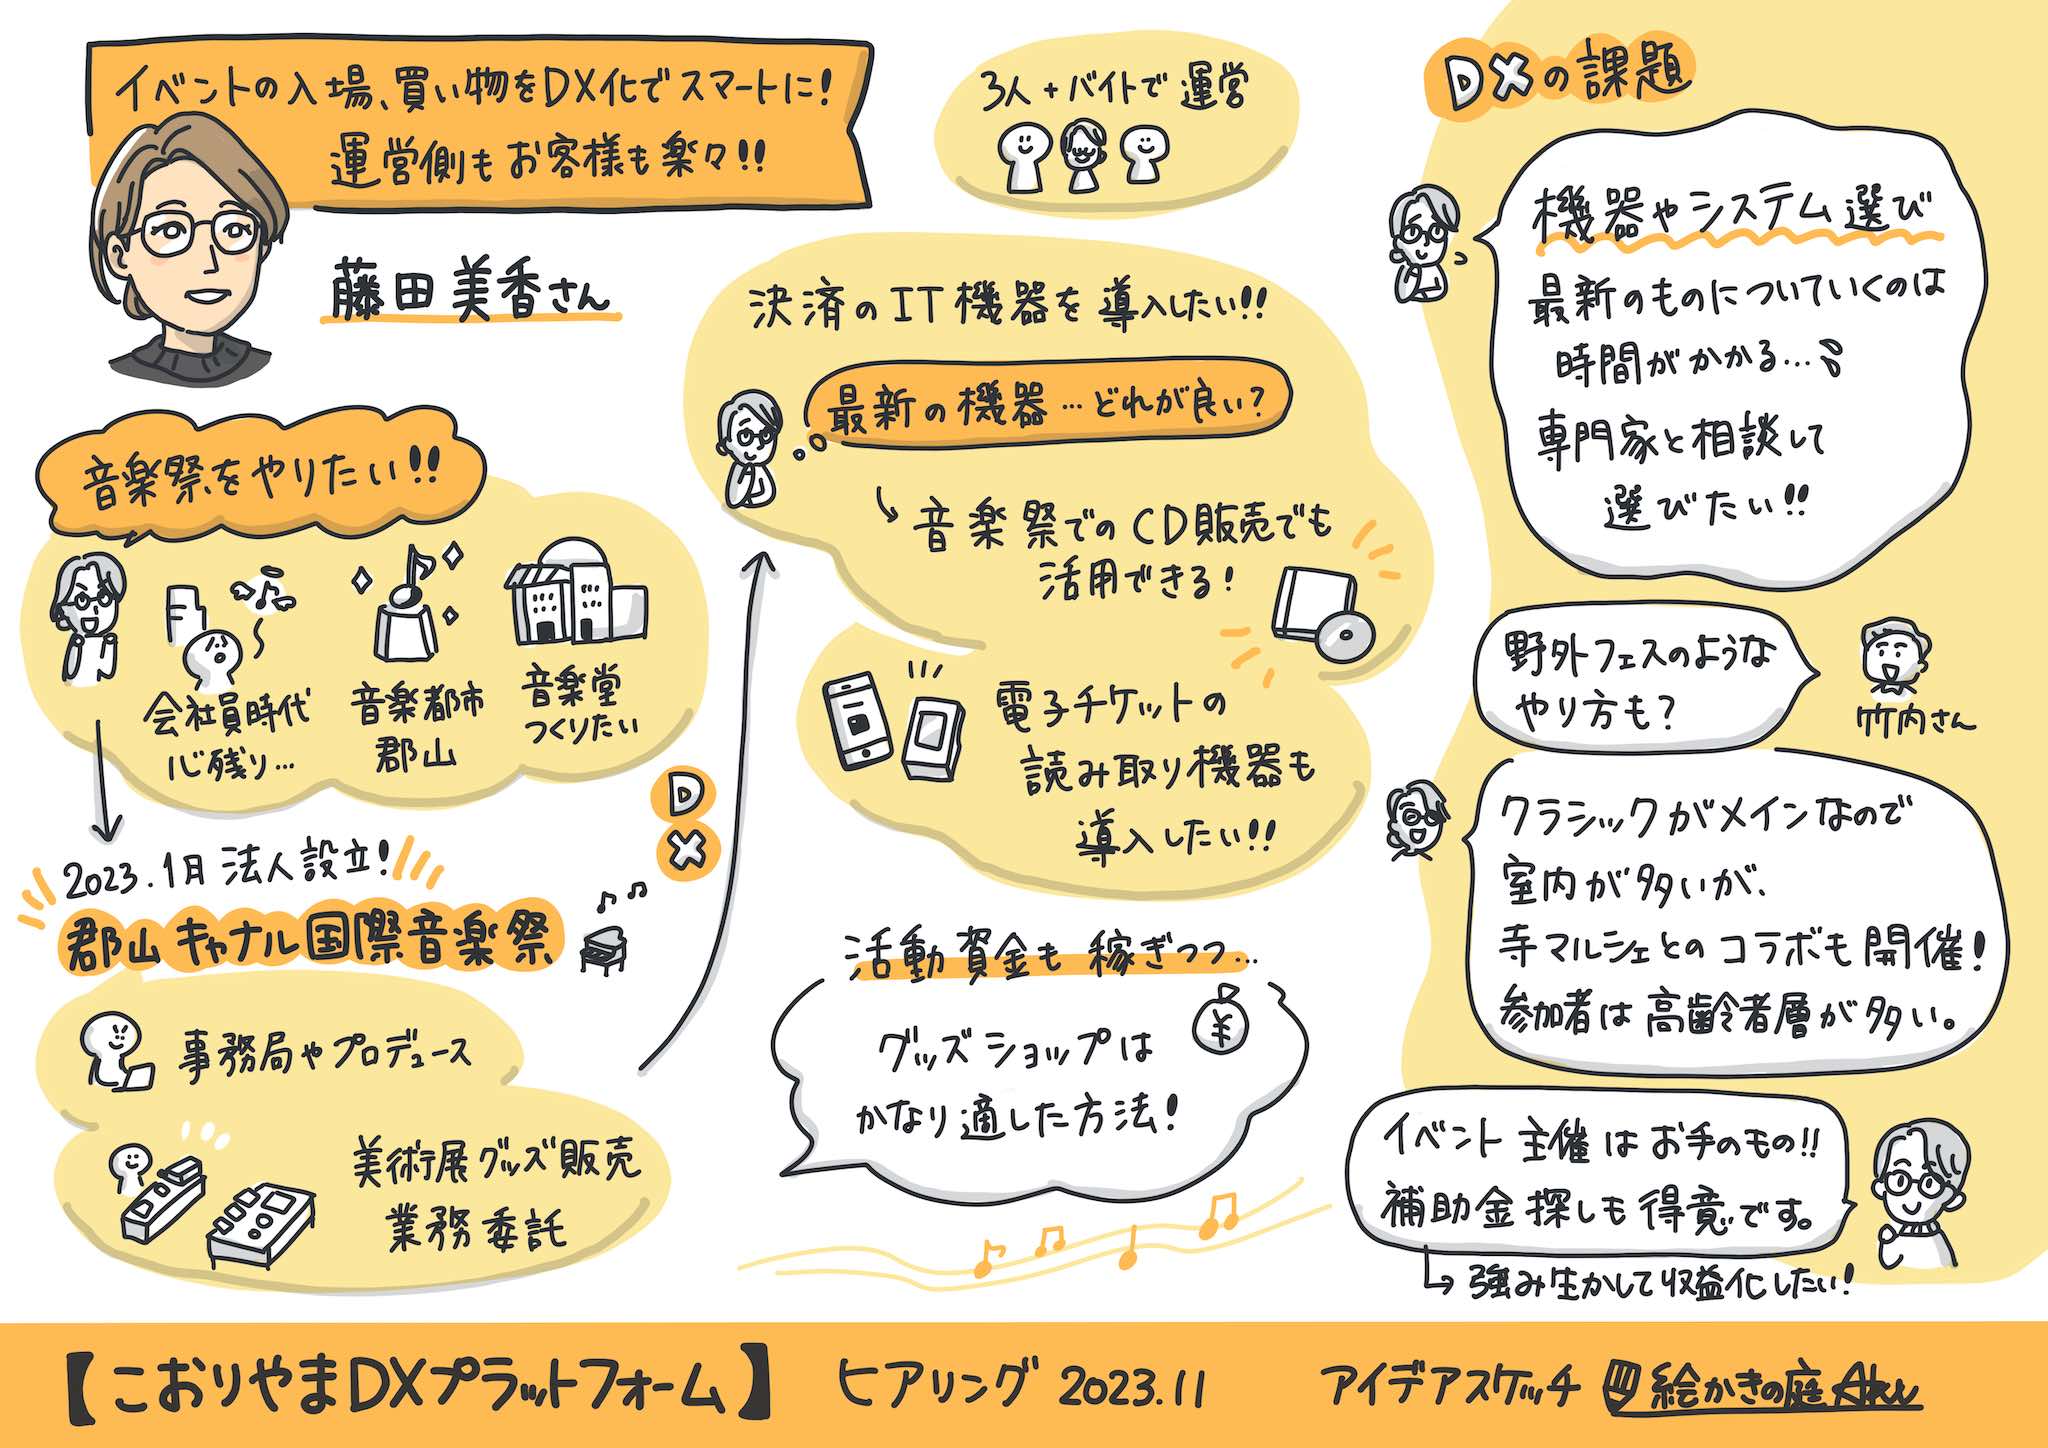 イベントの入場、買い物をDX化でスマートに!
運営側もお客様も楽々!!
藤田美香さん
音楽祭をやりたい!!
会社員時代
心残り…
音楽都市
郡山
音楽堂
つくりたい
2023.1月 法人設立!
郡山キャナル国際音楽祭
事務局やプロデュース
美術展グッズ販売
業務委託
DX
3人+バイトで運営
決済のIT機器を導入したい!!
最新の機器…どれが良い?
音楽祭でのCD販売でも
活用できる!
電子チケットの
読み取り機器も
導入したい!!
活動資金も稼ぎつつ…
グッズショップは
かなり適した方法!
¥
DXの課題
機器やシステム選び
最新のものについていくのは
時間がかかる…
専門家と相談して
選びたい!!
野外フェスのような
やり方も?
竹内さん
クラシックがメインなので
室内が多いが、
寺マルシェとのコラボも開催!
参加者は高齢者層が多い。
イベント主催はお手のもの!!
補助金探しも得意です。
強み生かして収益化したい!
【こおりやまDXプラットフォーム】 ヒアリング 2023.11 アイデアスケッチ 絵かきの庭 Aku